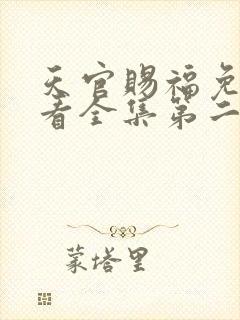 天官赐福免
看全集第二
蒙塔里